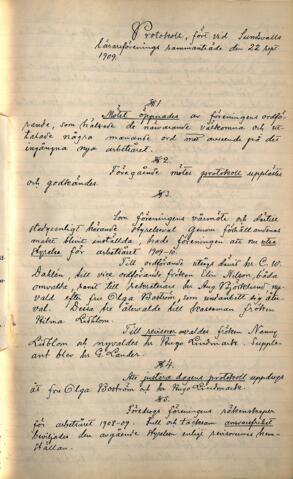 Protokoll, fört vid Sundsvalls
lärareförenings sammanträde den 22 sept.
1909.
§ 1.
Mötet öppnades av föreningens ordfö-
rande, som hälsade de närvarande välkomna och ut-
talade några manande ord med avseende på det
ingångna nya arbetsåret.
§ 2.
Föregående mötes protokoll upplästes
och godkändes.
§ 3.
Som föreningens vårmöte och därtill
stadgeenligt hörande styrelseval genom förhållandenas
makt blivit inställda, hade föreningen att nu välja
styrelse för arbetsåret 1909-10.
Till ordförande utsågs därvid hr C. W.
Dahlén, till vice ordförande fröken Elin Nilson, båda
omvalda, samt till sekreterare hr Aug Björklund, ny-
vald efter fru Olga Boström, som undanbett sig åter-
val. Dessa tre återvalde till kassaman fröken
Hilma Lidblom.
Till revisorer valdes fröken Nanny
Lidblom och nyvaldes hr Hugo Lindmark. Supple-
ant blev hr G. Lander.
§ 4.
Att justera dagens protokoll uppdrogs
åt fru Olga Boström och hr Hugo Lindmark.
§ 5.
Föredrogs föreningens räkenskaper
för arbetsåret 1908-09. Full och tacksam ansvarsfrihet
beviljades den avgående styrelsen enligt revisorernas hem-
ställan.